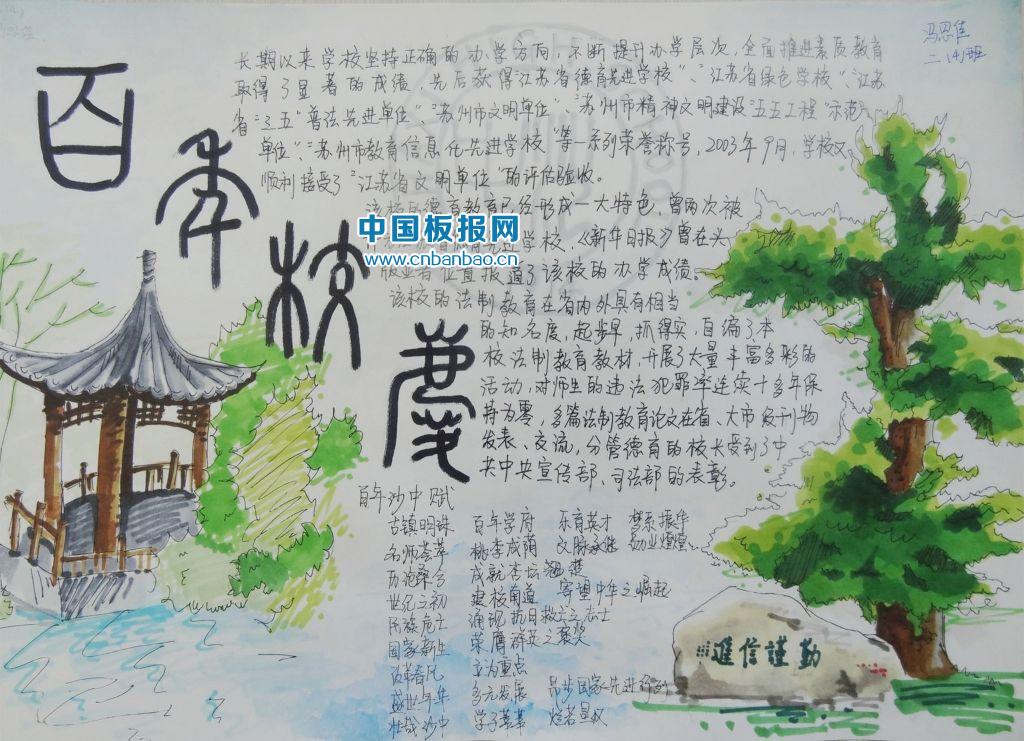 百年校庆
冯恩佳
二(4)班
长期以来学校坚持正确的办学方向，不断提升办学层次，全面推进素质教育
取得了显著的成绩，先后获得江苏省德育先进学校"、"江苏省绿色学校"、"江苏
省"三五"普法先进单位"、"苏州市文明单位"、"苏州市精神文明建设"五五工程"示范
单位"、"苏州市教育信息化先进学校"等一系列荣誉称号，2003年9月，学校又
顺利接受了"江苏省文明单位"的评估验收。
该校的德育教育已经形成一大特色，曾两次被
育先进学校，《新华日报》曾在头
版显著位置报道了该校的办学成绩。
中国板报网
www.cnbanbao.cn
该校的法制教育在省内外具有相当
的知名度，起步早，抓得实，自编了本
校法制教育教材，开展了大量丰富多彩的
活动，对师生的违法犯罪率连续十多年保
持为零，多篇法制教育论文在省、大市级刊物
发表、交流，分管德育的校长受到了中
共中央宣传部、司法部的表彰。
百年沙中赋
古镇明珠 百年学府 乐育英才 梦系振华
名师荟萃 桃李成荫 文脉承继
历沧桑 成就杏坛
世纪之初 建校南道 寄望中华之崛起
民族危亡 涌现抗日救亡之志士
国家新生 荣膺群英之褒奖
改革春风 立为重点
盛世年华 多元发展 昂步国家先进行列
壮哉沙中 学子莘莘
勤謹信進